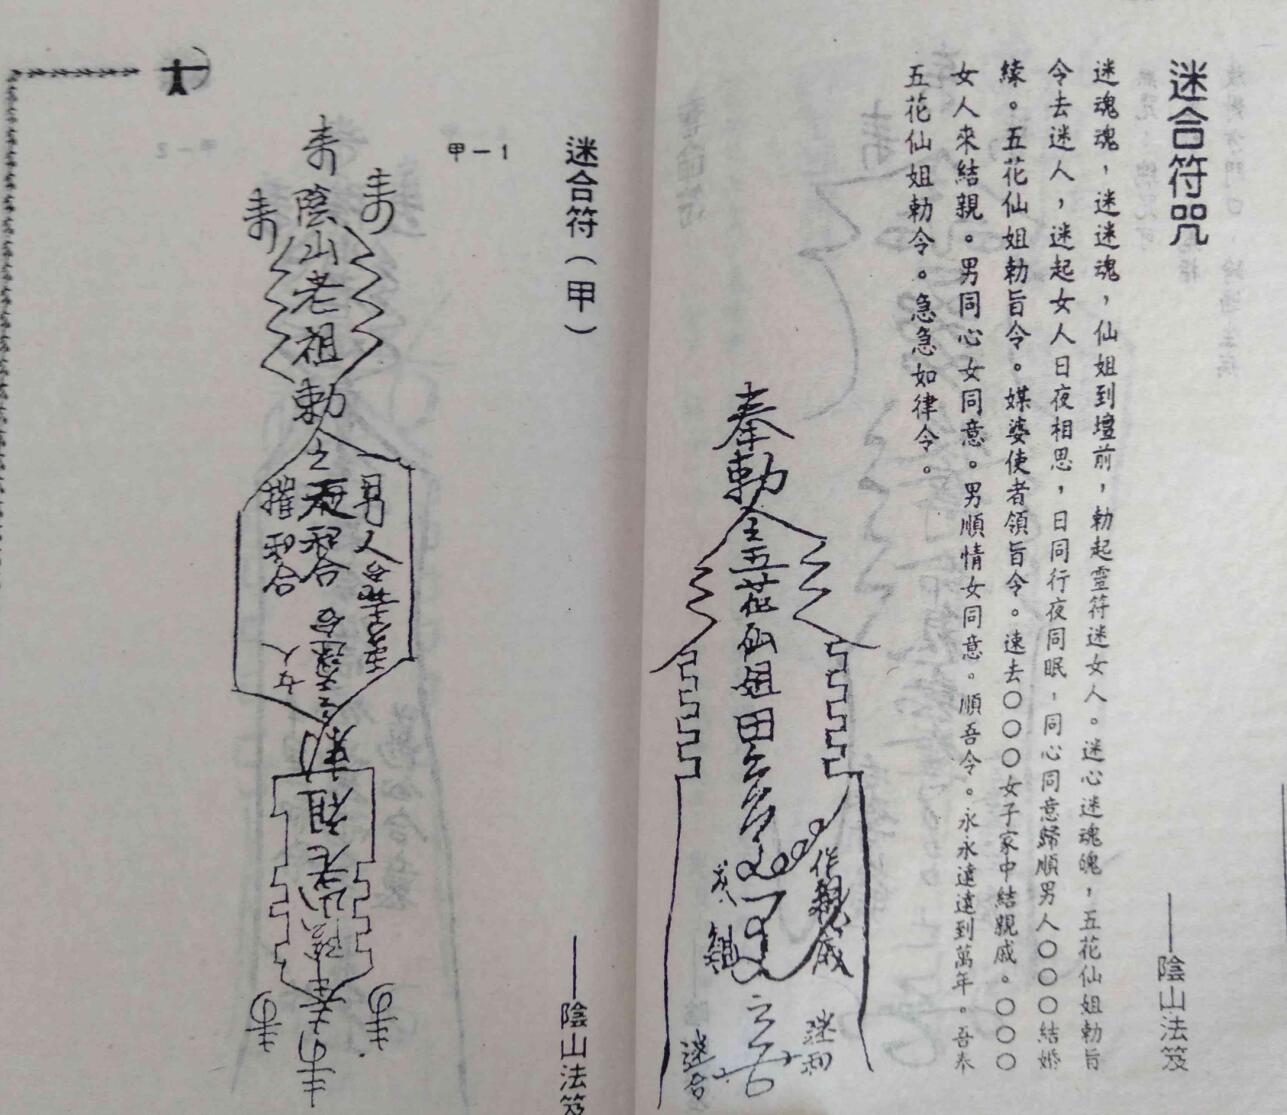 迷合符咒
——陰山法笈
迷魂魂，迷迷魂，仙姐到壇前，勅起靈符迷女人。迷心迷魂魄，五花仙姐勅旨
令去迷人，迷起女人日夜相思，日同行夜同眠，同心同意歸順男人〇〇〇結婚
緣。五花仙姐勅旨令。媒婆使者領旨令。速去〇〇〇女子家中結親戚。〇〇〇
女人來結親。男同心女同意。男順情女同意。順吾令。永永遠遠到萬年。吾奉
五花仙姐勅令。急急如律令。
奉勅令五花仙姐
作親戚
迷和
迷合
迷合符（甲）
——陰山法笈
甲—1
陰山老祖勅令
男人
和合
和合
女人
老祖